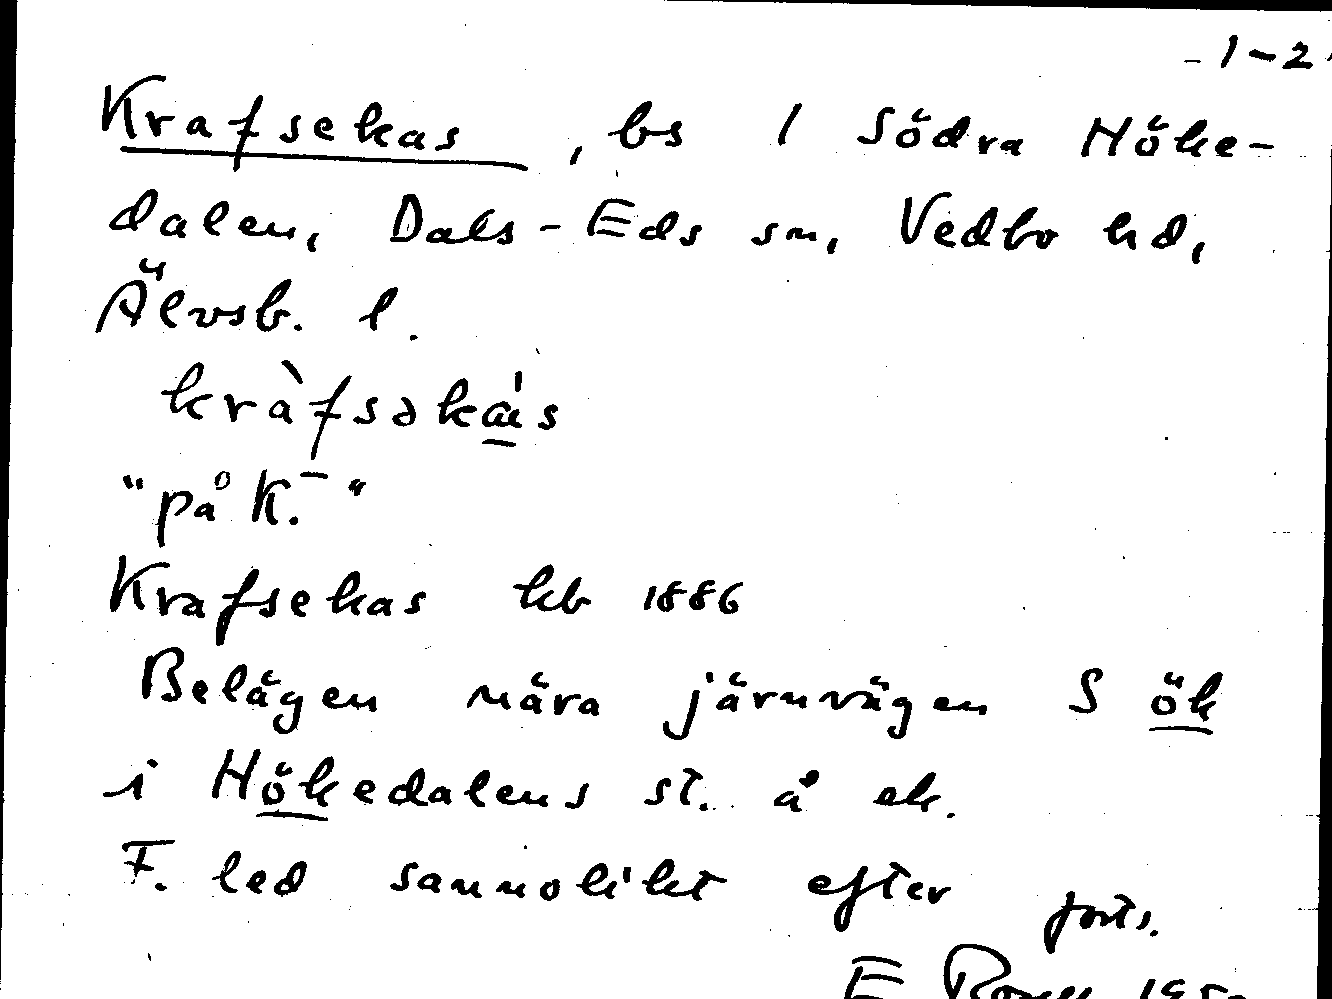 - 1-2
Krafsekas, bs 1 Södra Höke-
dalen, Dals-Eds sn, Vedbo hd,
Älvsb. l.
kràfsəka̍s
"på K.-"
Krafsekas kb 1886
Belägen nära järnvägen S ök
i Hökedalens st. å ek.
F. led sannolikt efter forts.
E